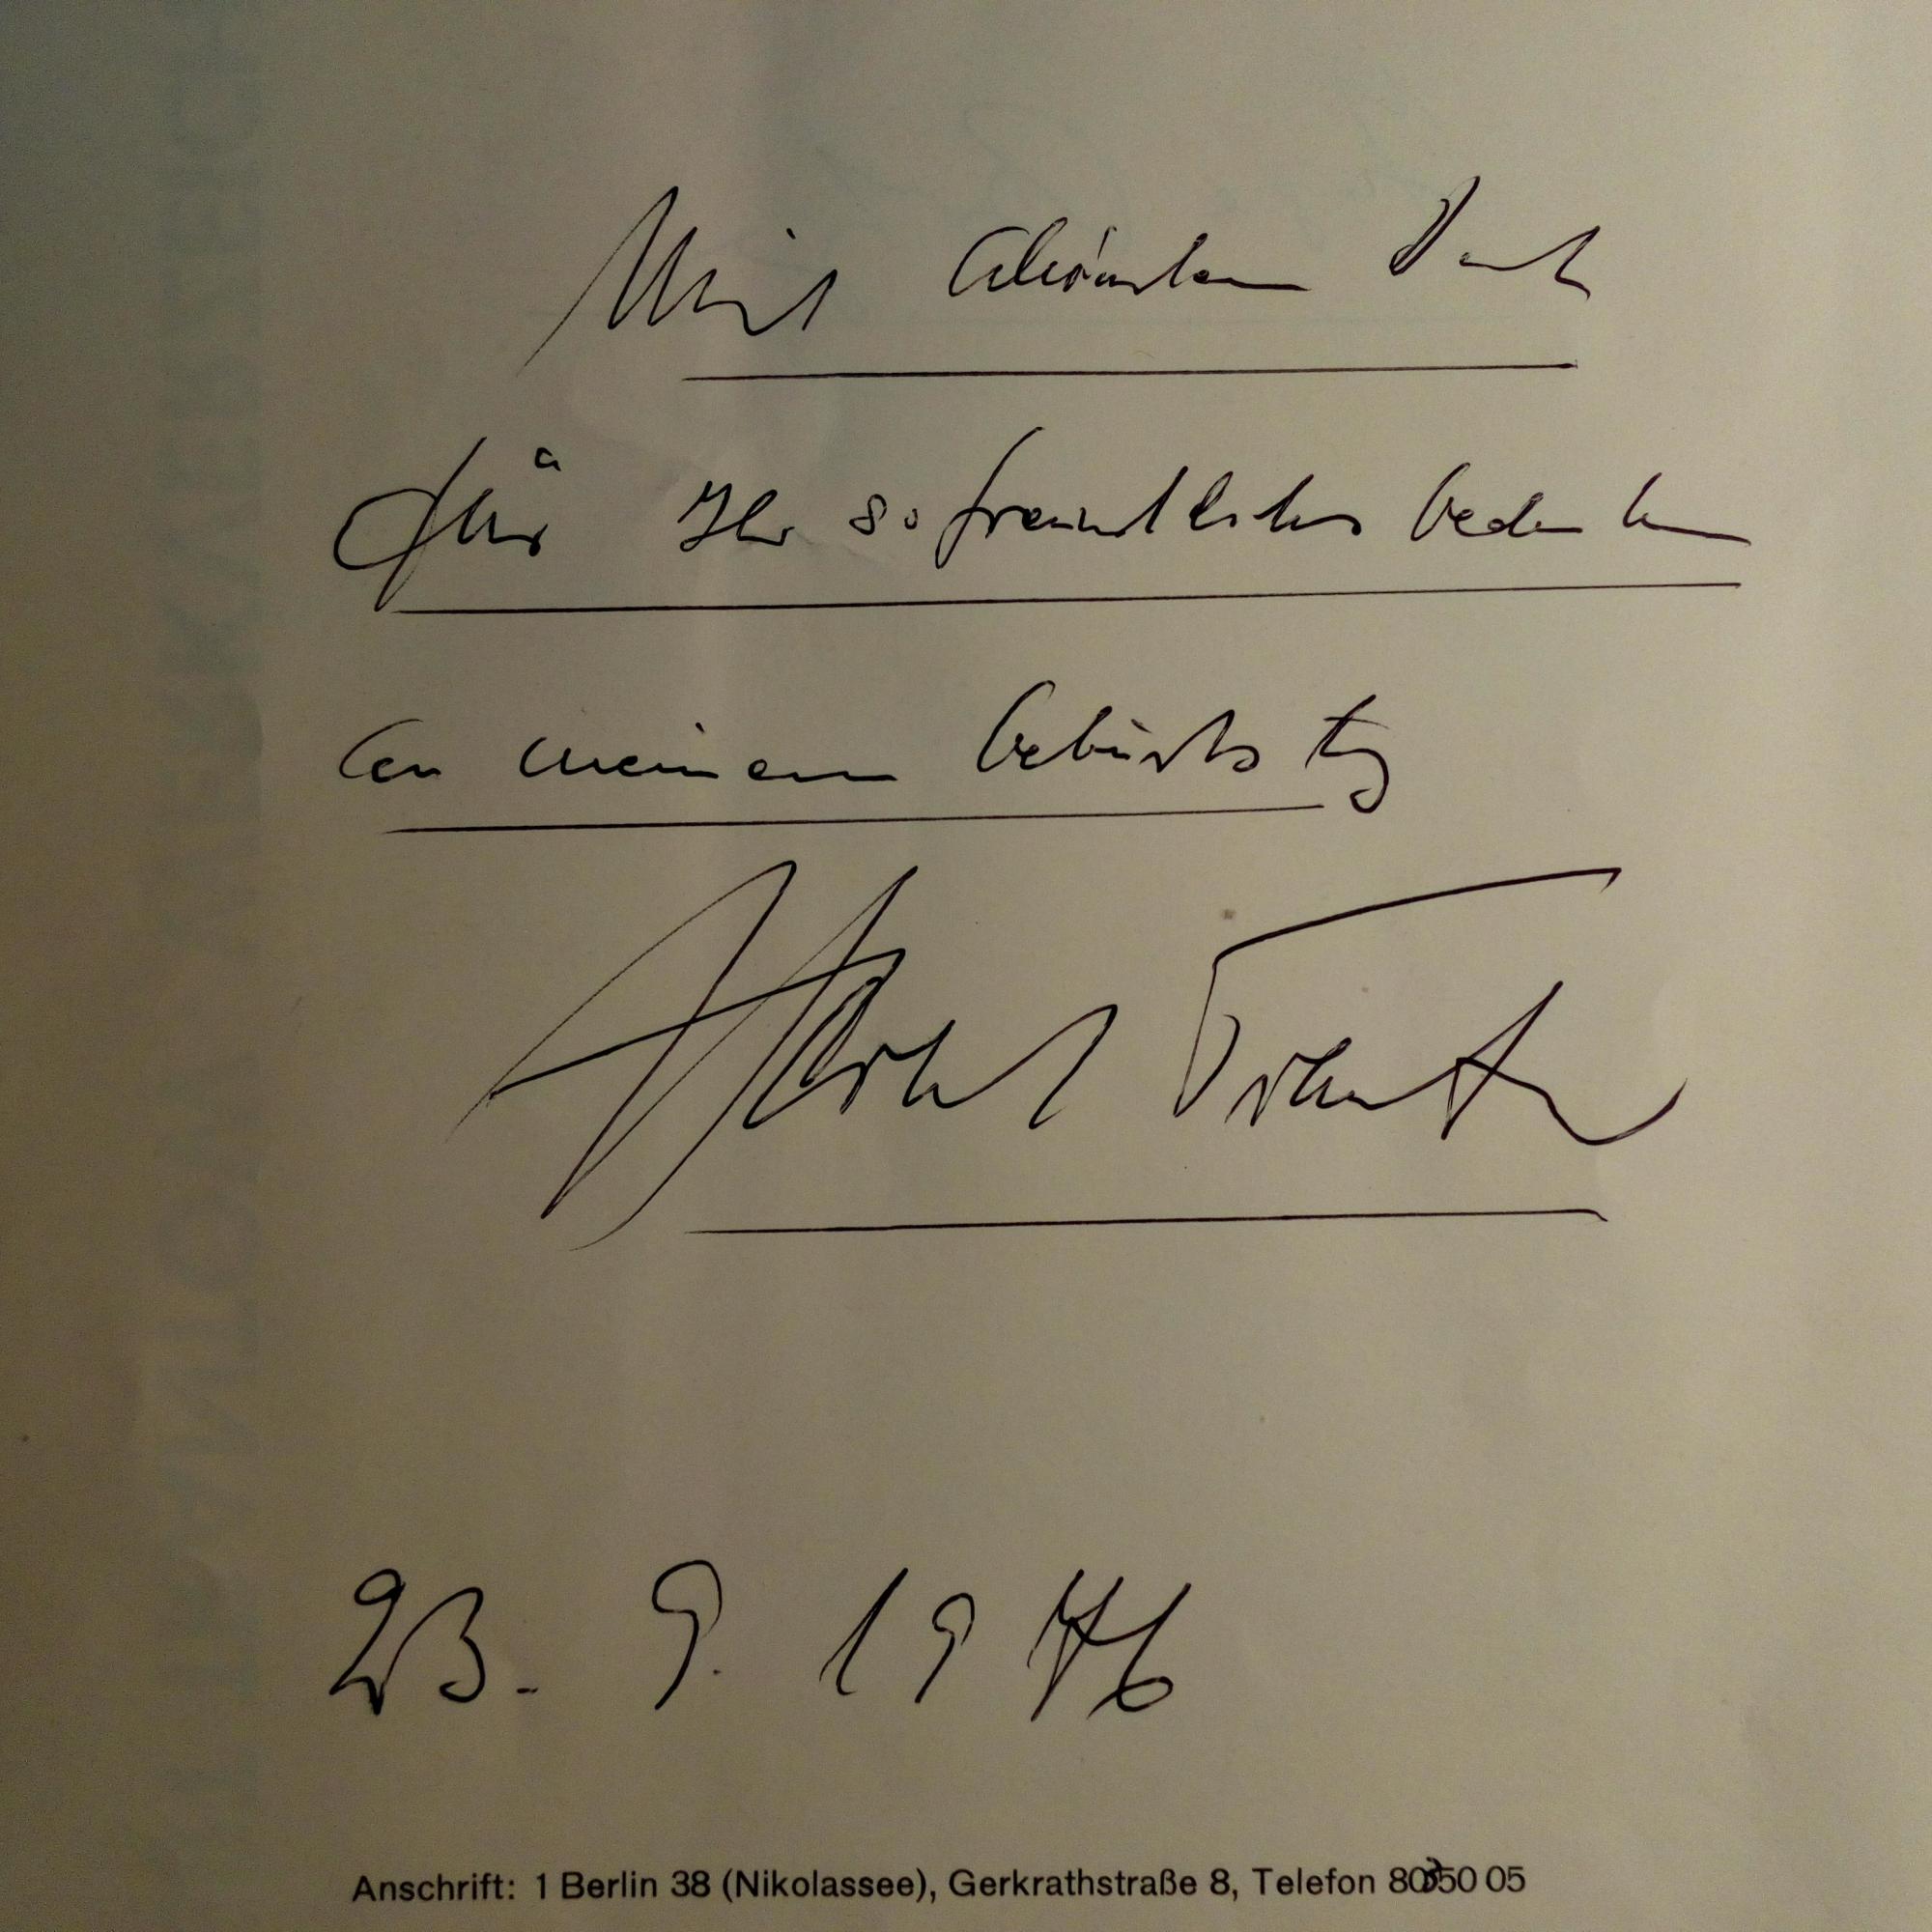 Mit schönstem Dank
für Ihr so freundliches Gedenken
an meinem Geburtstag
23. 9. 1976
Anschrift: 1 Berlin 38 (Nikolassee), Gerkrathstraße 8, Telefon 803 50 05